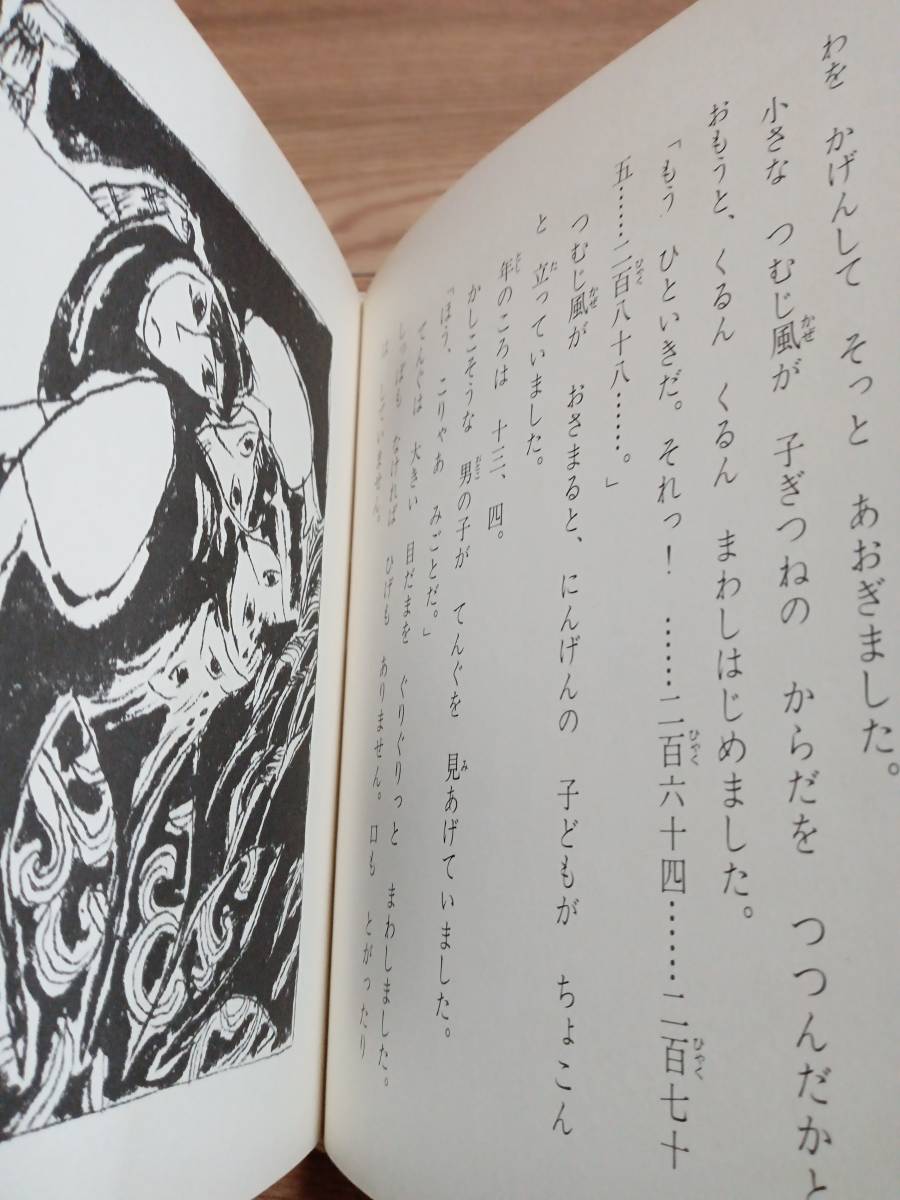 わを かげんして そっと あおぎました。
小さな つむじ風が 子ぎつねの からだを つつんだかと
おもうと、くるん くるん まわしはじめました。
「もう ひといきだ。それっ! ……二百六十四……二百七十
五……二百八十八……。」
つむじ風が おさまると、にんげんの 子どもが ちょこん
と 立っていました。
年のころは 十三、四。
かしこそうな 男の子が てんぐを 見あげていました。
「ほう、こりゃあ みごとだ。」
てんぐは 大きい 目だまを ぐりぐりっと まわしました。
しっぽも なければ ひげも ありません。口も とがったり
は していません。